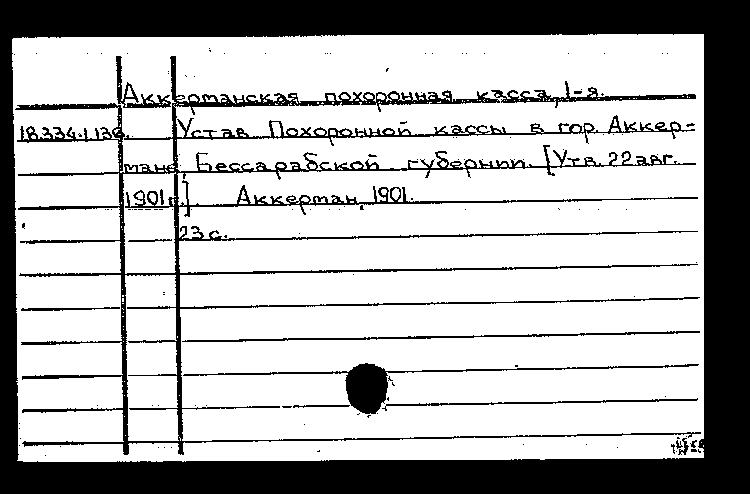 Аккерманская похоронная касса, 1-я.
18.334.1.136. Устав Похоронной кассы в гор. Аккер-
мане, Бессарабской губернии. [Утв. 22 авг.
1901 г.]. Аккерман, 1901.
23 с.